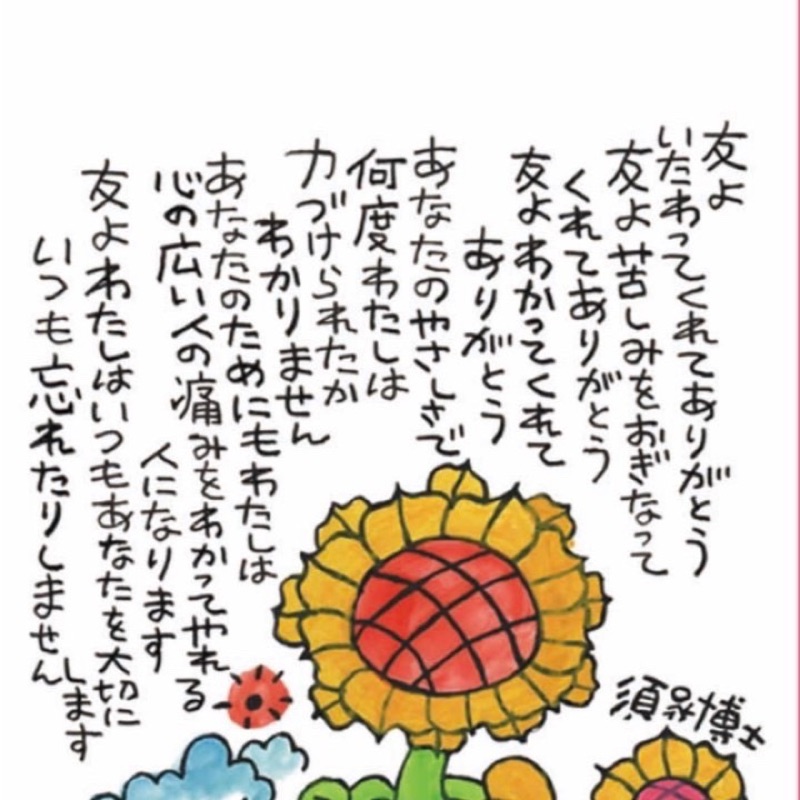 友よ
いたわってくれてありがとう
友よ苦しみをおぎなって
くれてありがとう
友よわかってくれて
ありがとう
あなたのやさしさで
何度わたしは
力づけられたか
わかりません
あなたのためにもわたしは
心の広い人の痛みをわかってやれる
人になります
友よわたしはいつもあなたを大切に
します
いつも忘れたりしません
須永博士